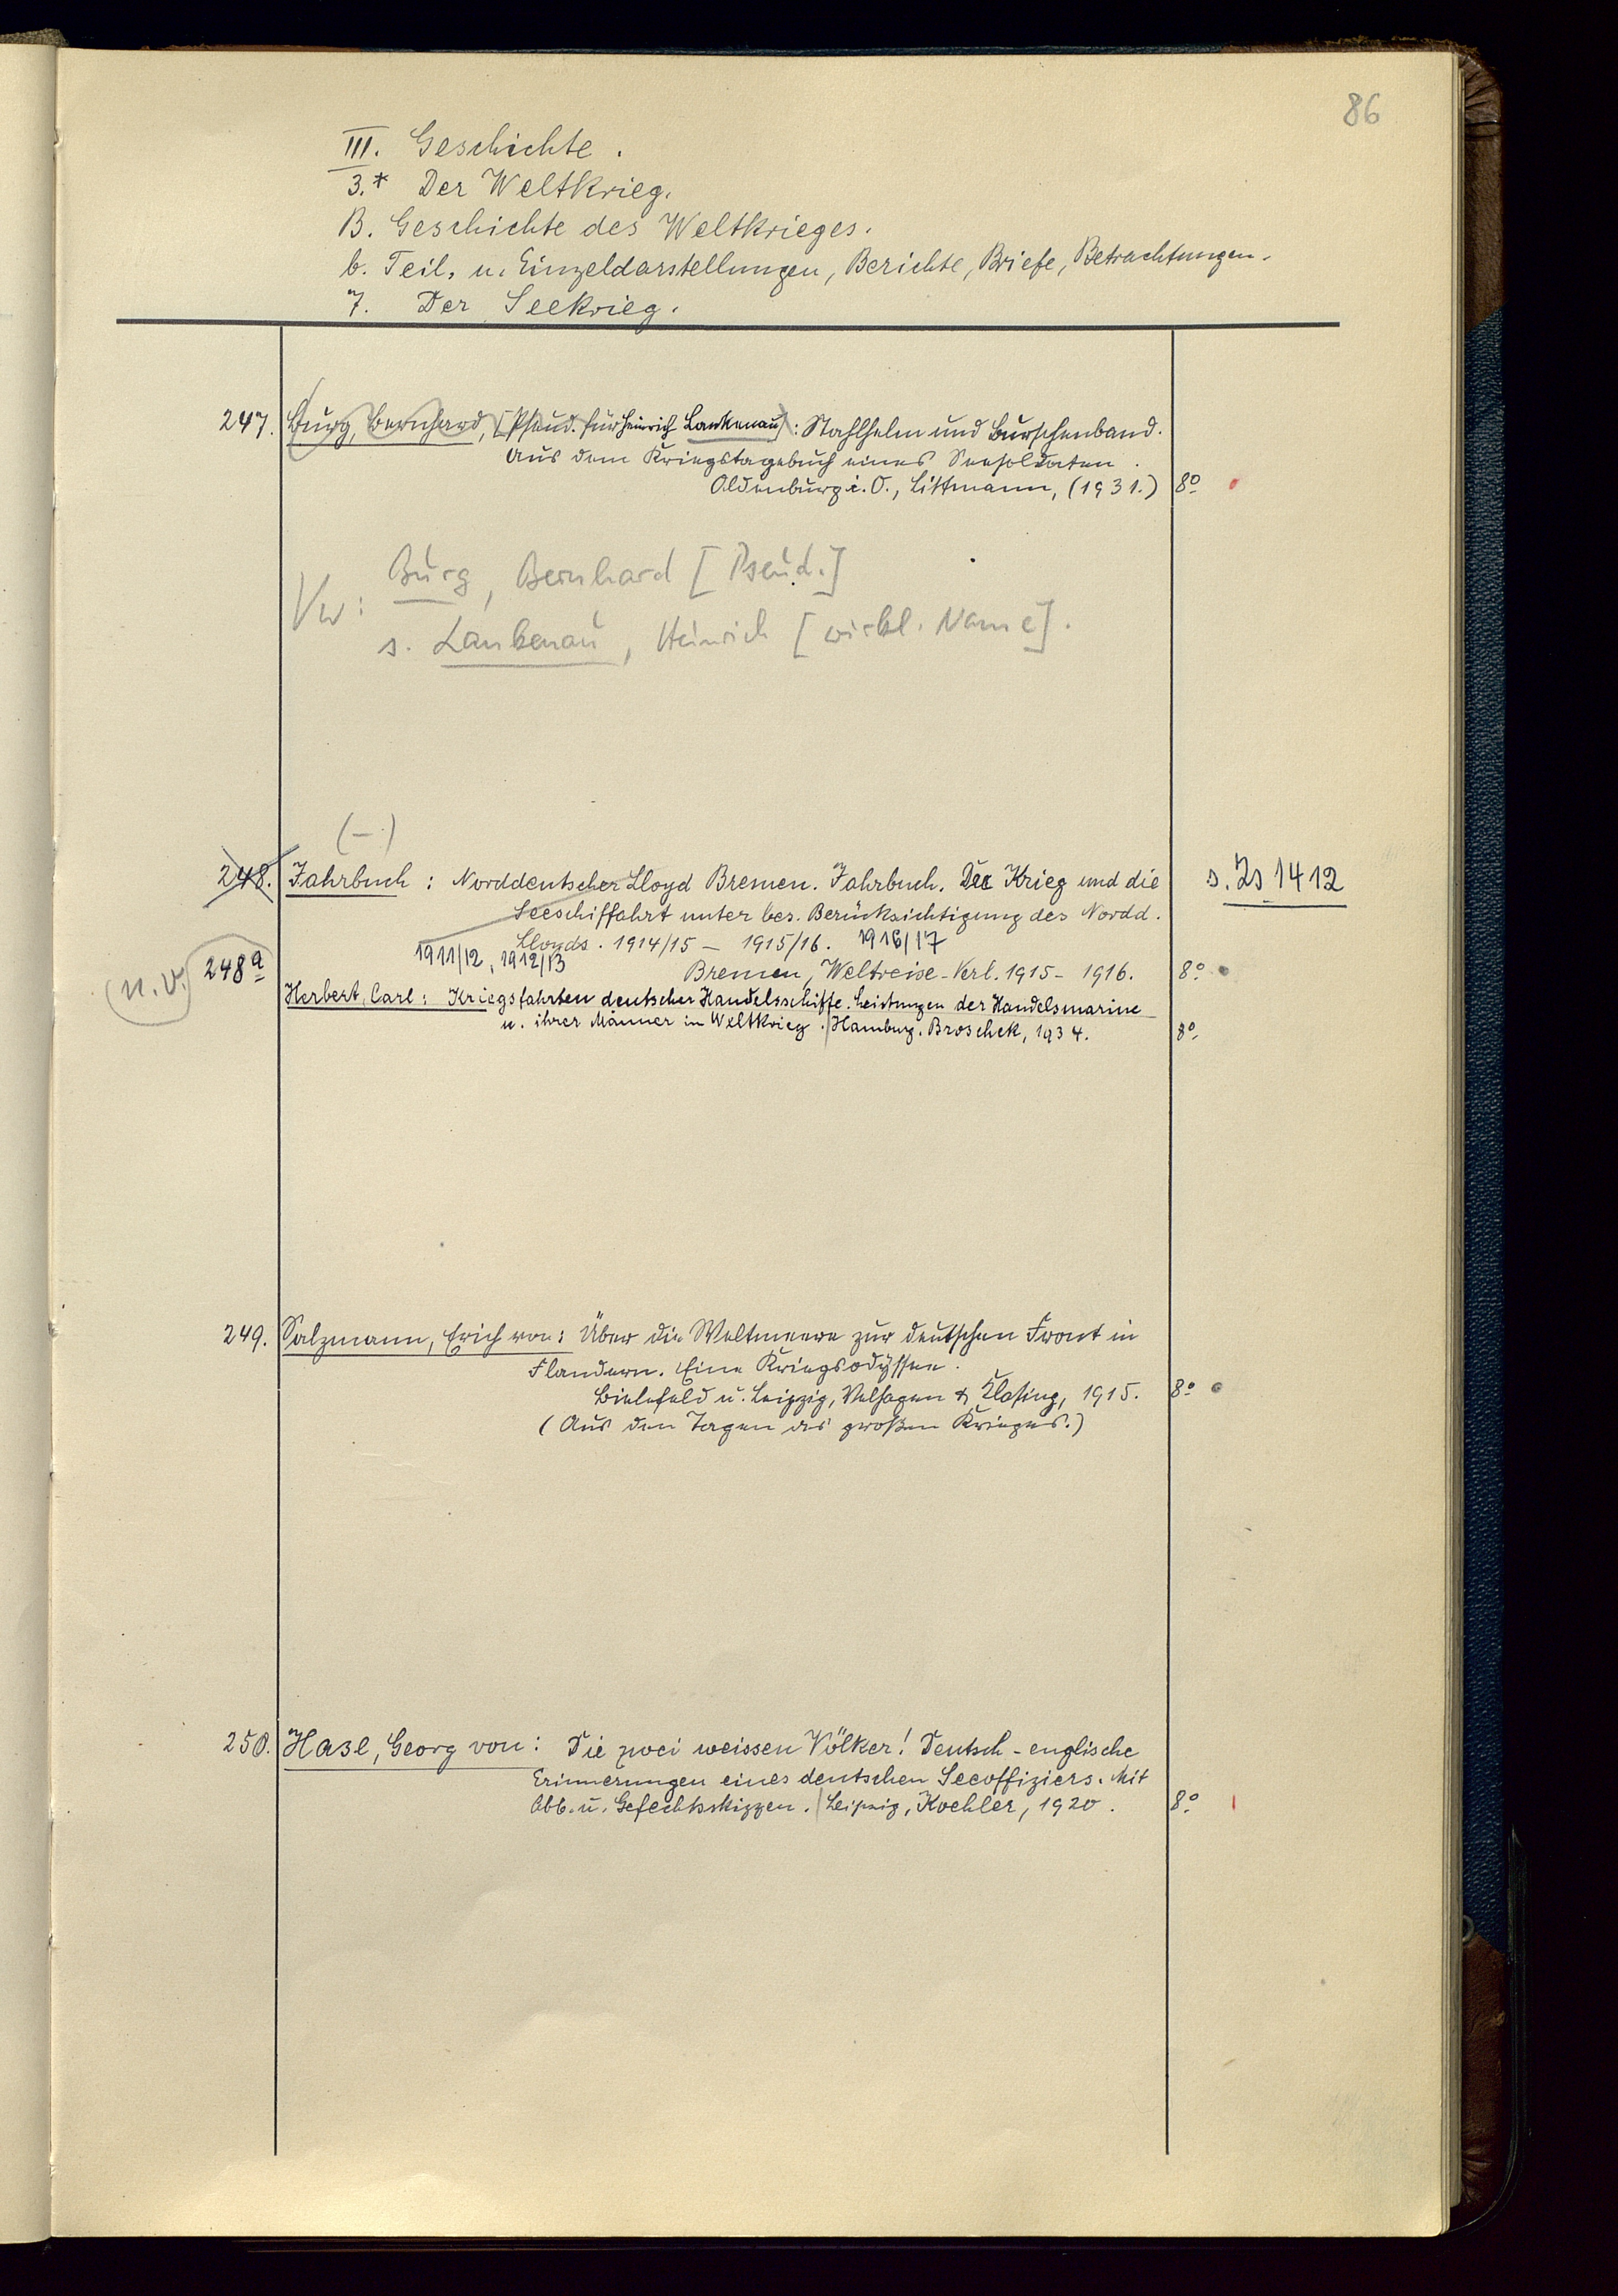 86
III. Geschichte.
3.* Der Weltkrieg.
B. Geschichte des Weltkrieges.
b. Teil- u. Einzeldarstellungen, Berichte, Briefe, Betrachtungen.
7. Der Seekrieg.
247. Burg, Bernhard, [Pseud. für Heinrich Lankenau]: Stahlhelm und Burschenband.
Aus dem Kriegstagebuch eines Seesoldaten.
Oldenburg i. O., Littmann, (1931.) 8°
Vw: Burg, Bernhard [Pseud.]
s. Lankenau, Heinrich [wirkl. Name].
(-)
248. Jahrbuch: Norddeutscher Lloyd Bremen. Jahrbuch. Der Krieg und die s. Zs 1412
Seeschiffahrt unter bes. Berücksichtigung des Nordd.
Lloyds. 1914/15 - 1915/16. 1916/17
1911/12, 1912/13
Bremen, Weltreise-Verl. 1915 - 1916. 8°
(n. v.) 248a
Herbert, Carl: Kriegsfahrten deutscher Handelsschiffe. Leistungen der Handelsmarine
u. ihrer Männer im Weltkrieg. / Hamburg. Broschek, 1934. 8°
249. Salzmann, Erich von: Über die Weltmeere zur deutschen Front in
Flandern. Eine Kriegsodyssee.
Bielefeld u. Leipzig, Velhagen & Klasing, 1915. 8°
(Aus den Tagen des großen Krieges.)
250. Hase, Georg von: Die zwei weissen Völker! Deutsch-englische
Erinnerungen eines deutschen Seeoffiziers. Mit
Abb. u. Gefechtsskizzen. / Leipzig, Koehler, 1920. 8°